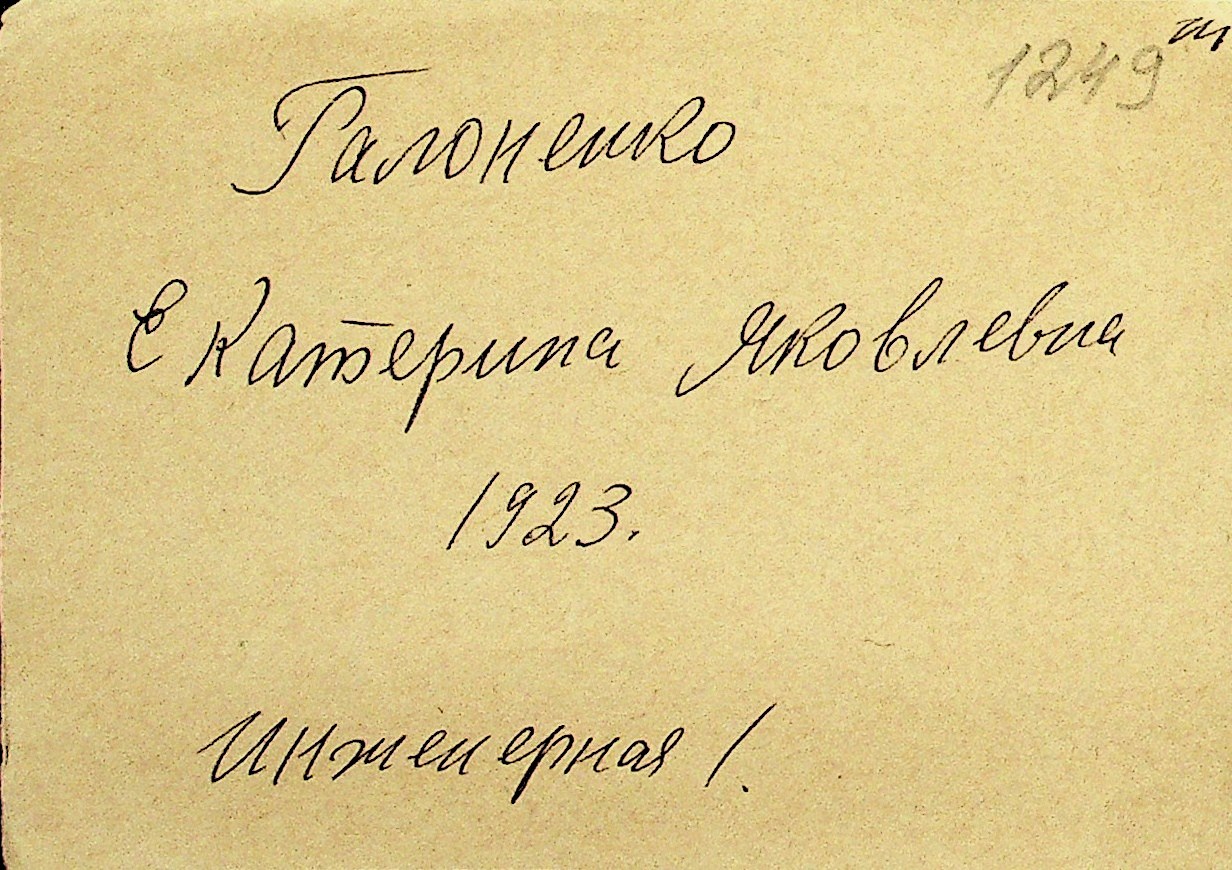 1249
Галоненко
Екатерина Яковлевна
1923.
Инженерная 1.